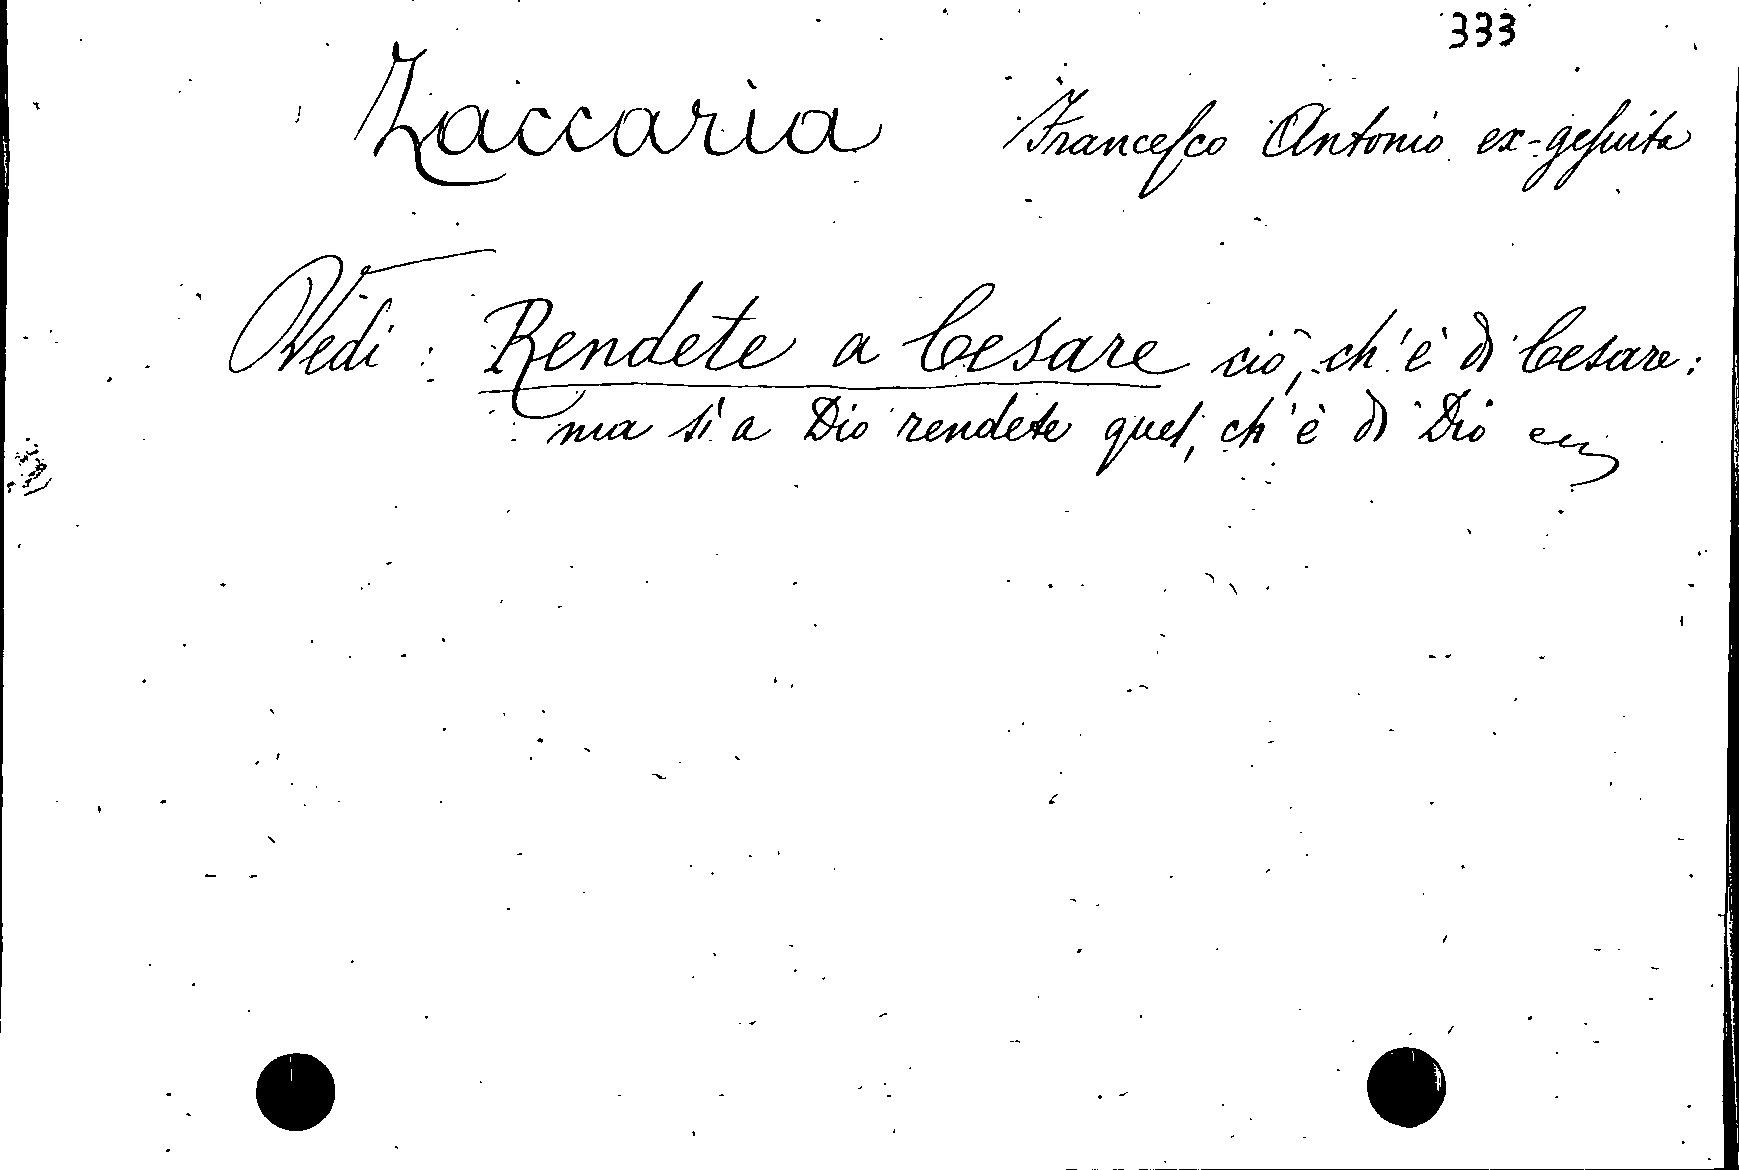 333
Zaccaria Franceſco Antonio ex-geſuita
Vedi : Rendete a Cesare ciò, ch'è di Cesare :
ma sì a Dio rendete quel, ch'è di Dio